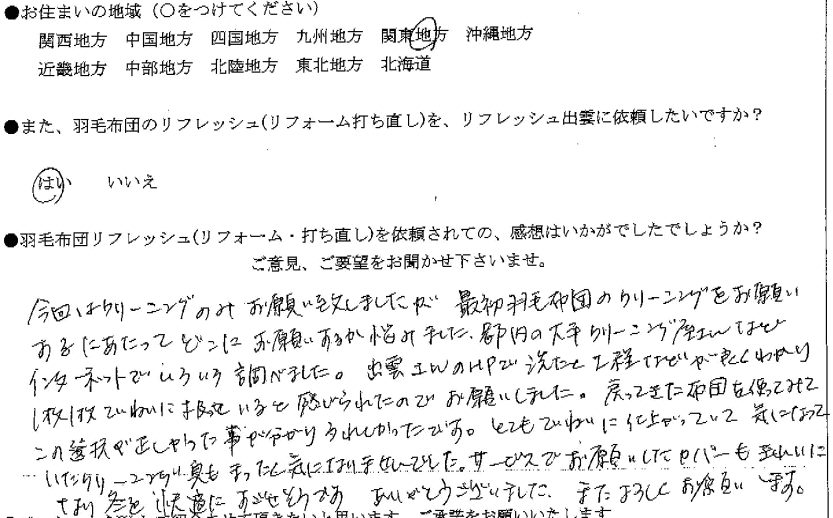 ●お住まいの地域（○をつけてください）
関西地方　中国地方　四国地方　九州地方　関東地方　沖縄地方
近畿地方　中部地方　北陸地方　東北地方　北海道
●また、羽毛布団のリフレッシュ(リフォーム打ち直し)を、リフレッシュ出雲に依頼したいですか？
はい　いいえ
●羽毛布団リフレッシュ(リフォーム・打ち直し)を依頼されての、感想はいかがでしたでしょうか？
ご意見、ご要望をお聞かせ下さいませ。
今回はクリーニングのみ お願い致しましたが 最初羽毛布団のクリーニングをお願い
するにあたって どこに お願いするか悩みました、都内の大手クリーニング屋さんなど
インターネットでいろいろ調べました。 出雲さんのHPで 洗たく工程などが良くわかり
1枚1枚ていねいに扱っていると 感じられたので お願いしました。 戻ってきた布団を使ってみて
この選択が正しかった事が分かり うれしかったです。 とてもていねいに仕上がっていて 気になって
いたクリーニング臭もまったく気になりませんでした。サービスでお願いしたカバーもきれいに
なり 冬を 快適に すごせそうです ありがとうございました、 また よろしく お願い します。